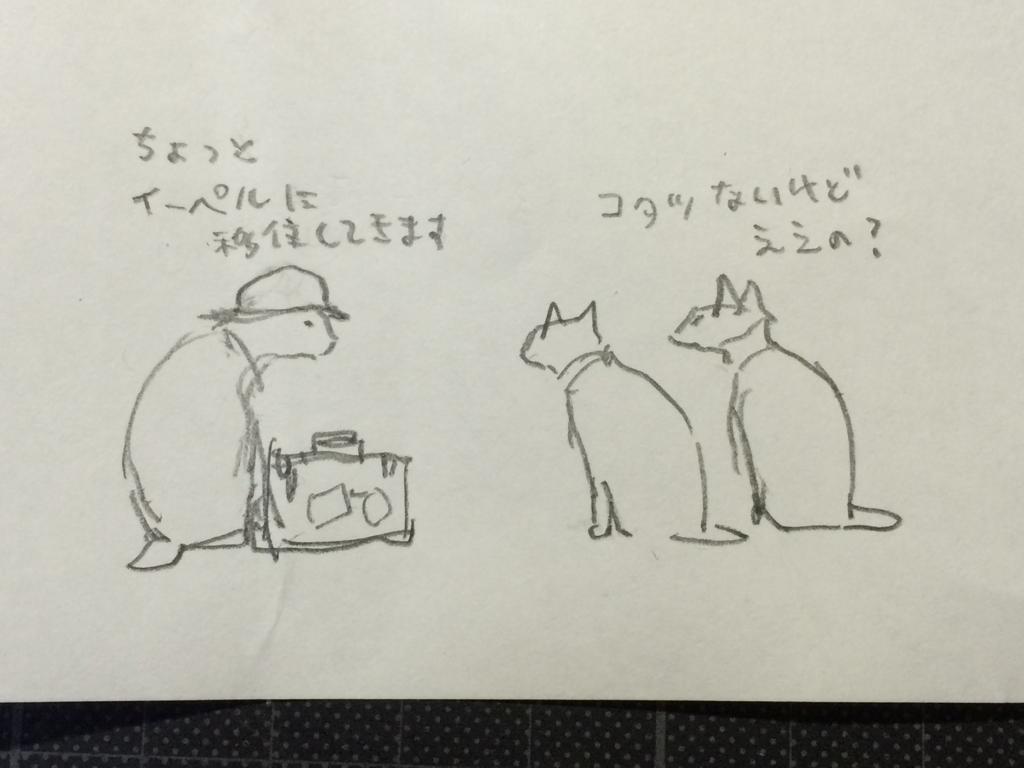 ちょっと
イーペルに
移住してきます
コタツないけど
ええの?